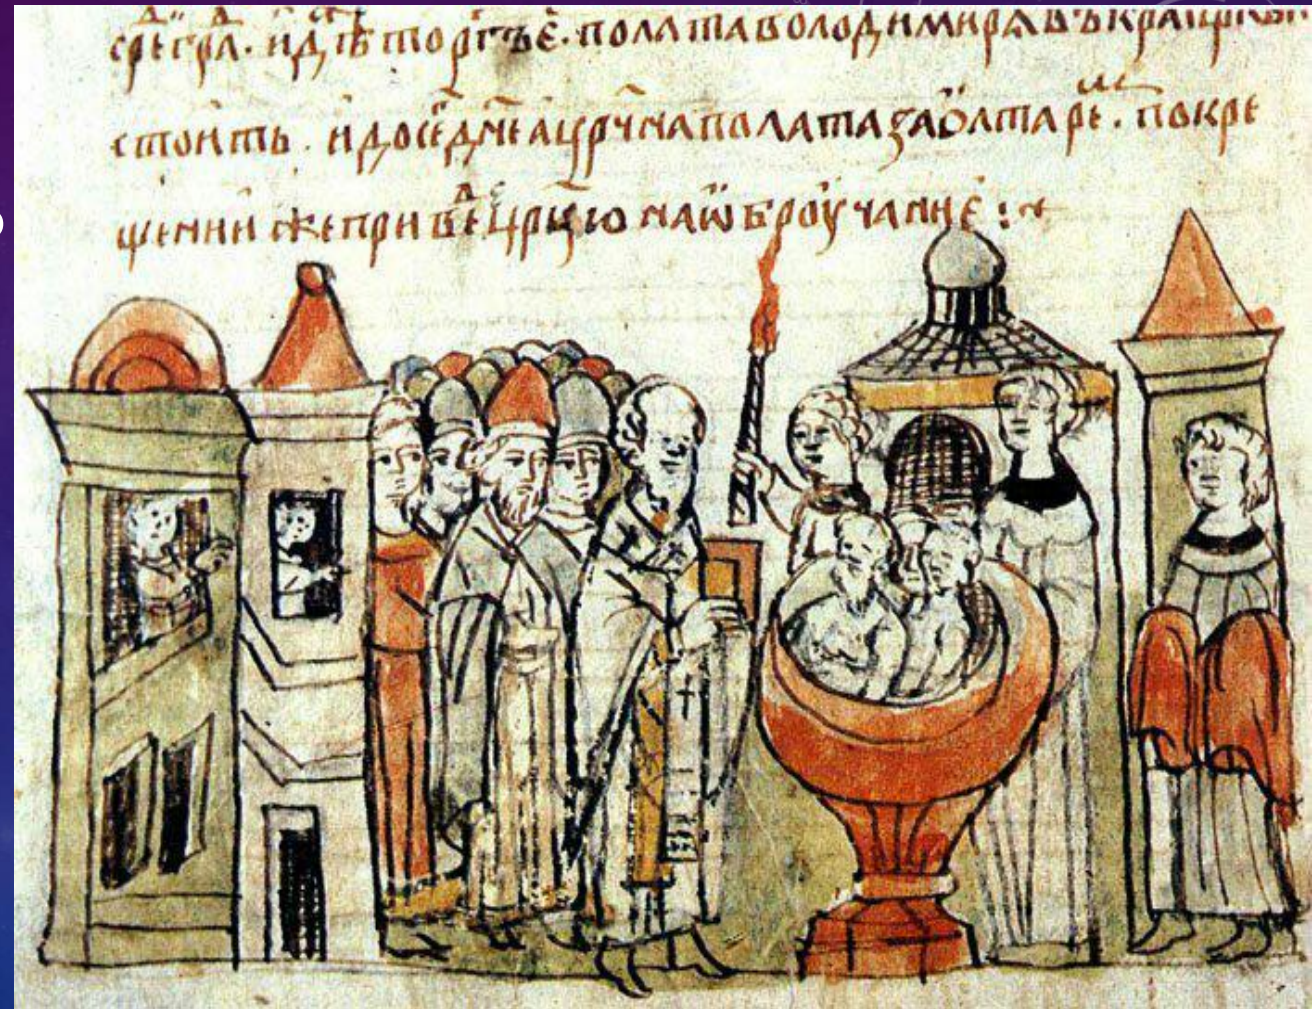 сре гра҄ · идѣ торгъ · полата володимирѧ въ краи цркви
стоить · и до сего дн҃е а цр҃ч҃на полата за олтаре · по кре
щении же приве цр҃цю на ѡброучание :~